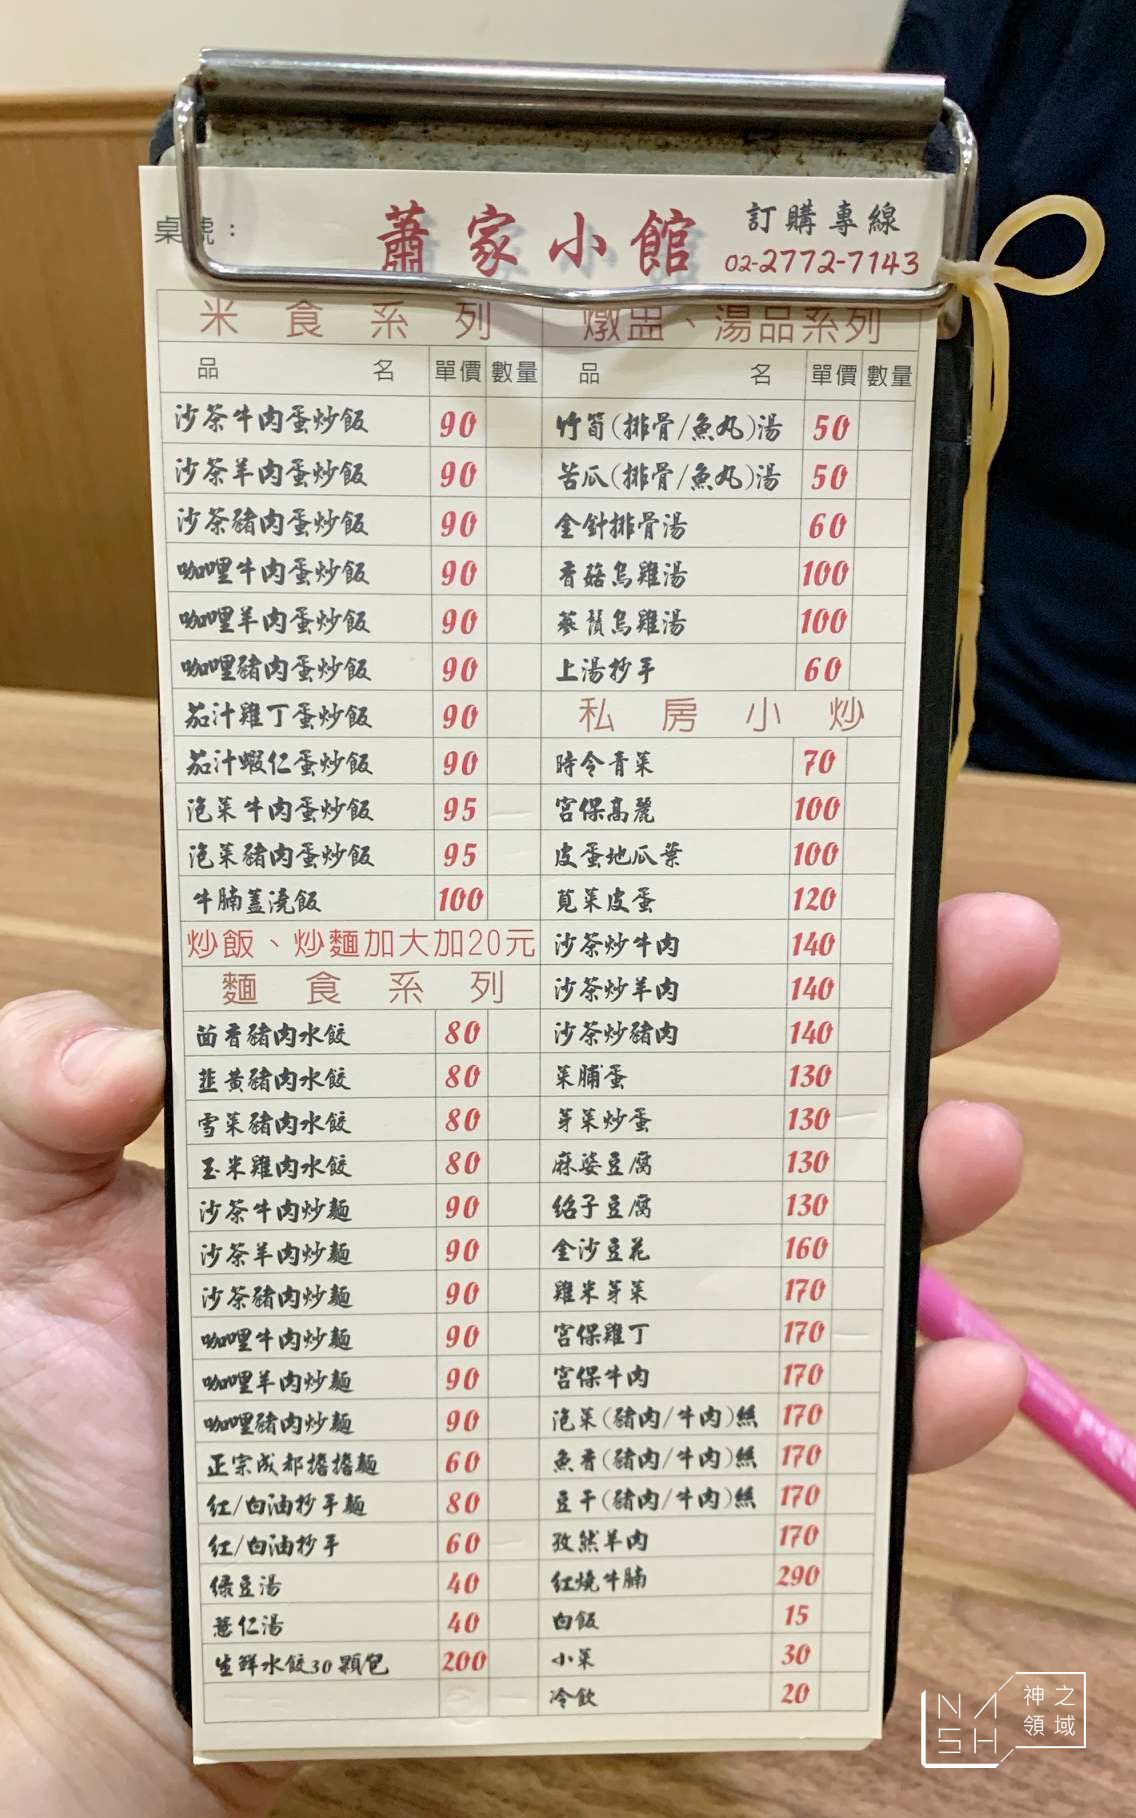 桌號：
蕭家小館
訂購專線
02-2772-7143
米食系列
品名 單價 數量
沙茶牛肉蛋炒飯 90
沙茶羊肉蛋炒飯 90
沙茶豬肉蛋炒飯 90
咖哩牛肉蛋炒飯 90
咖哩羊肉蛋炒飯 90
咖哩豬肉蛋炒飯 90
茄汁雞丁蛋炒飯 90
茄汁蝦仁蛋炒飯 90
泡菜牛肉蛋炒飯 95
泡菜豬肉蛋炒飯 95
牛腩蓋澆飯 100
炒飯、炒麵加大加20元
麵食系列
茴香豬肉水餃 80
韮黃豬肉水餃 80
雪菜豬肉水餃 80
玉米雞肉水餃 80
沙茶牛肉炒麵 90
沙茶羊肉炒麵 90
沙茶豬肉炒麵 90
咖哩牛肉炒麵 90
咖哩羊肉炒麵 90
咖哩豬肉炒麵 90
正宗成都擔擔麵 60
紅/白油抄手麵 80
紅/白油抄手 60
綠豆湯 40
薏仁湯 40
生鮮水餃30顆包 200
燉盅、湯品系列
品名 單價 數量
竹筍(排骨/魚丸)湯 50
苦瓜(排骨/魚丸)湯 50
金針排骨湯 60
香菇烏雞湯 100
蔘鬚烏雞湯 100
上湯抄手 60
私房小炒
時令青菜 70
宮保高麗 100
皮蛋地瓜葉 100
莧菜皮蛋 120
沙茶炒牛肉 140
沙茶炒羊肉 140
沙茶炒豬肉 140
菜脯蛋 130
芽菜炒蛋 130
麻婆豆腐 130
紹子豆腐 130
金沙豆花 160
雞米芽菜 170
宮保雞丁 170
宮保牛肉 170
泡菜(豬肉/牛肉)絲 170
魚香(豬肉/牛肉)絲 170
豆干(豬肉/牛肉)絲 170
孜然羊肉 170
紅燒牛腩 290
白飯 15
小菜 30
冷飲 20
NASH
神之領域